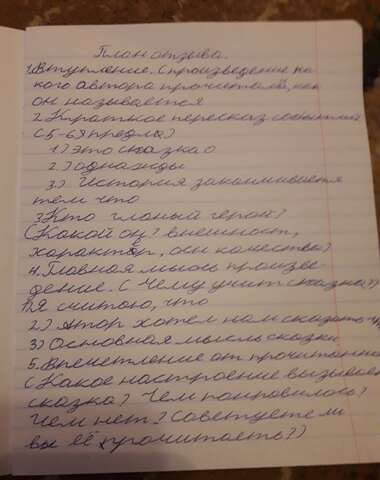 План отзыва.
1. Вступление. (произведение ка
кого автора прочитали, как
он называется
2. Краткое пересказ событий
(5-6 предл.)
1) Это сказка о
2) однажды
3) История заканчивается
тем что
3. Кто главный герой?
(Какой он? внешност,
характер, осн качества?
4. Главная мысль произве
дение. (Чему учит сказка?)
1) Я считаю, что
2) Автор хотел нам сказать ч
3) Основная мысль сказки
5. Впечетление от прочитанно
(Какое настроение вызывает
сказка? Чем понравилось?
Чем нет? Советуете ли
вы её прочитаеть?)